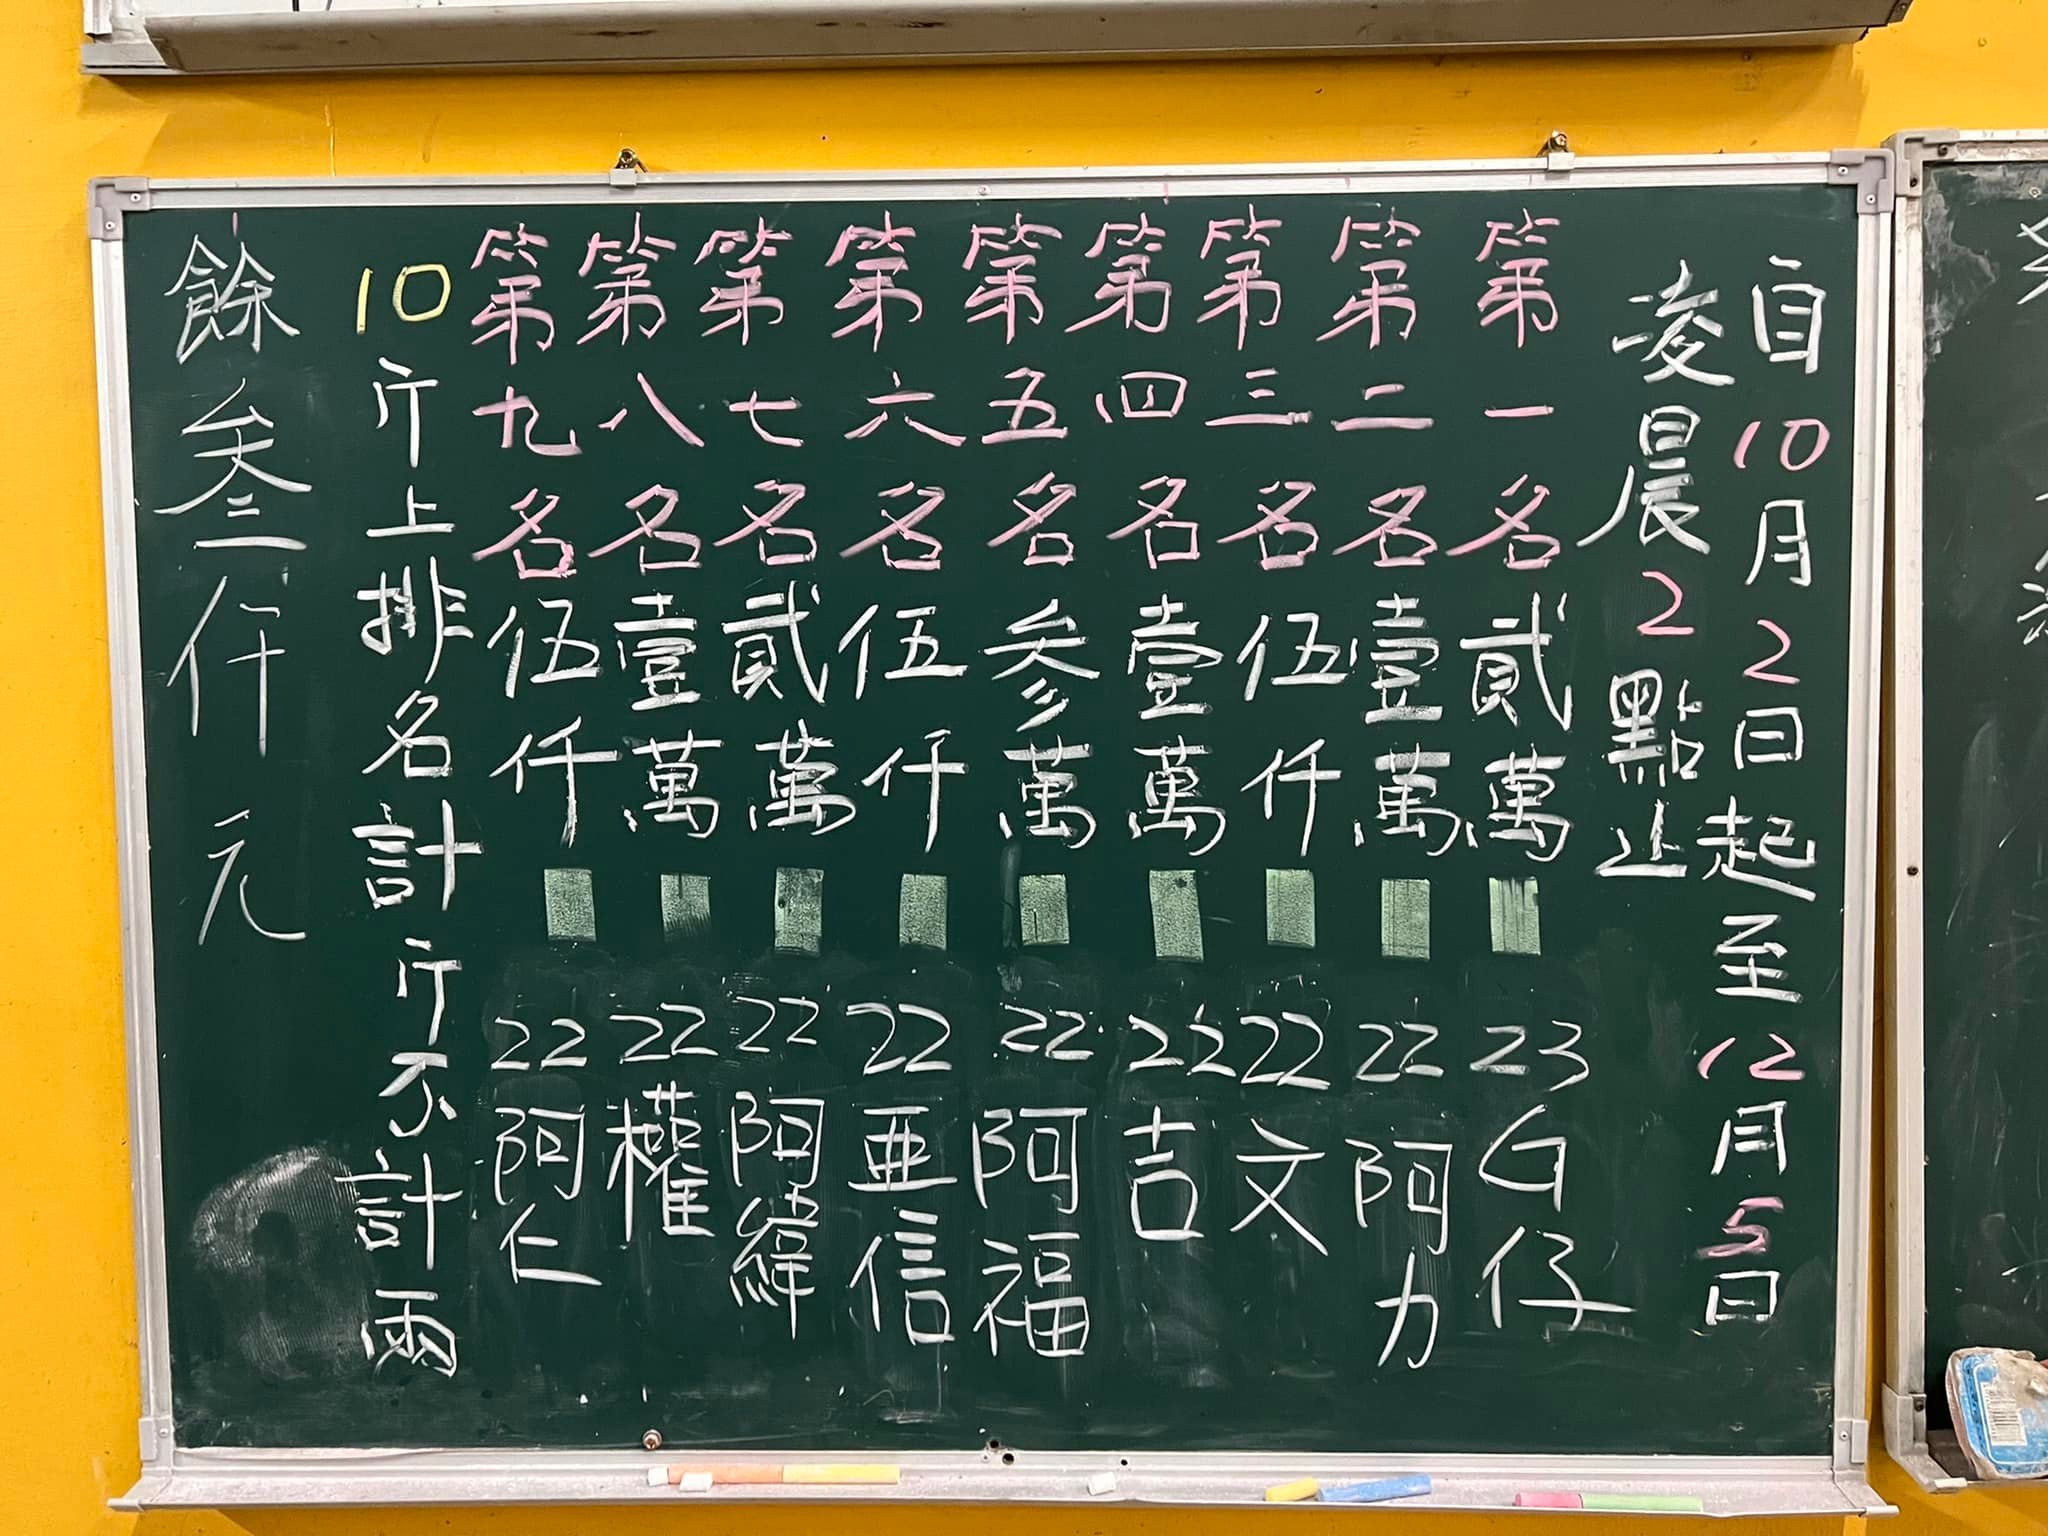 自10月2日起至12月5日
凌晨2點止
第一名貳萬 23 G仔
第二名壹萬 22 阿力
第三名伍仟 22 文
第四名壹萬 22 吉
第五名参萬 22 阿福
第六名伍仟 22 亜信
第七名貳萬 22 阿緯
第八名壹萬 22 權
第九名伍仟 22 阿仁
10斤上排名計斤不計兩
餘叁仟元